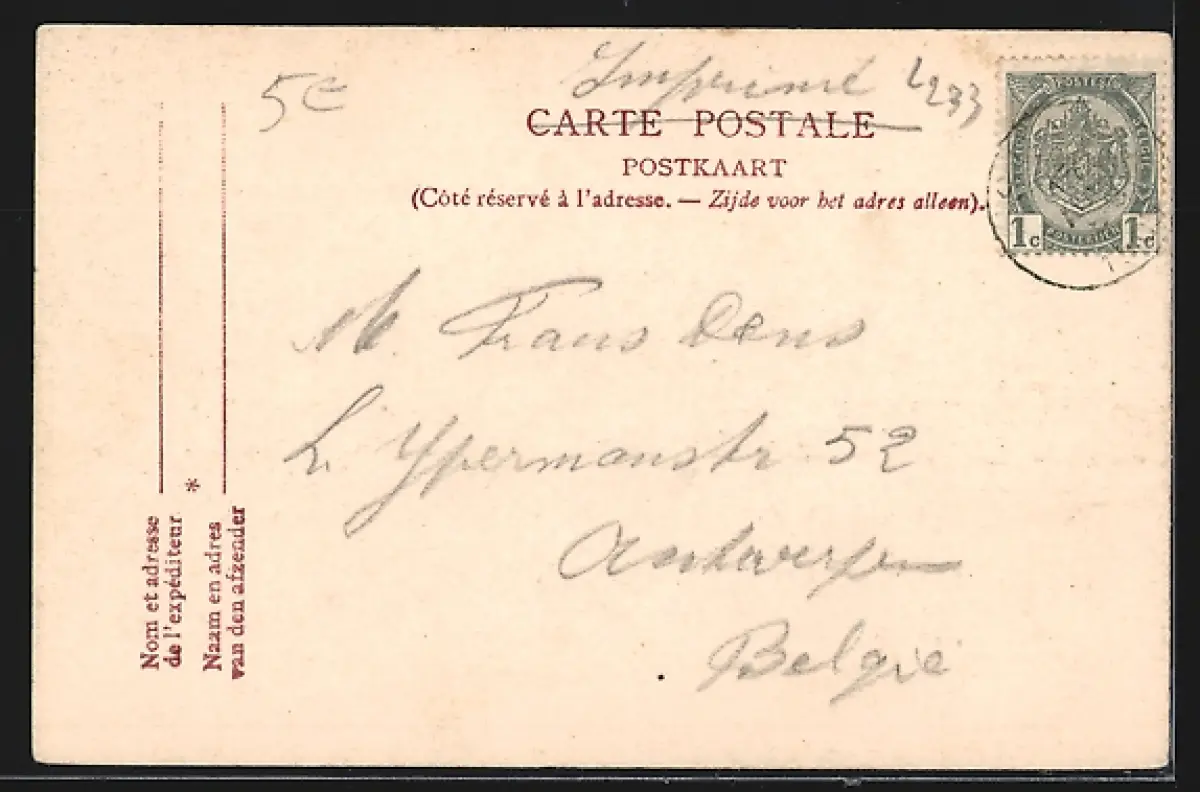 5c
Imprimé
CARTE POSTALE
POSTKAART
(Côté réservé à l'adresse. — Zijde voor het adres alleen).
POSTES
1c 1c
POSTERIJEN
M. Frans Dens
L. Ypermanstr 52
Antwerpen
België
Nom et adresse
de l'expéditeur
*
Naam en adres
van den afzender